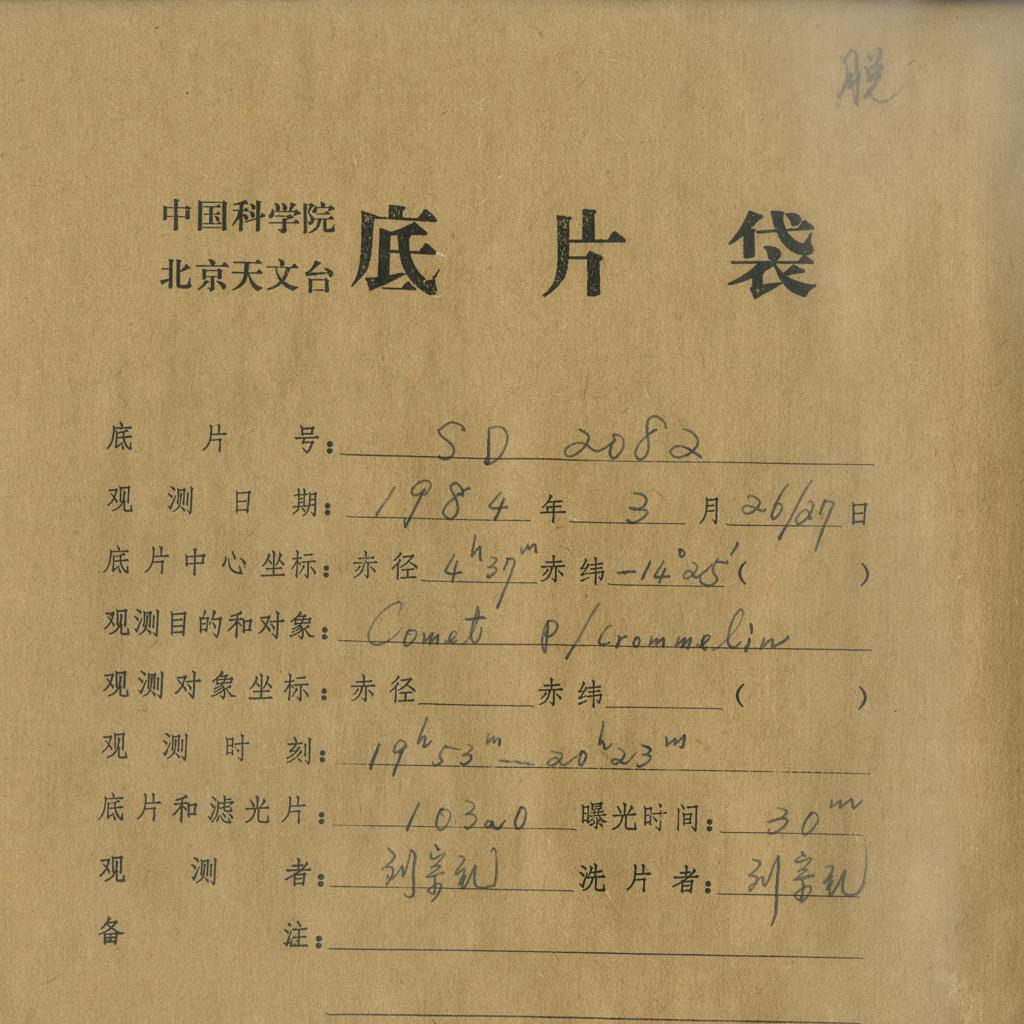 脱
中国科学院
北京天文台
底片袋
底片号：SD 2082
观测日期：1984年3月26/27日
底片中心坐标：赤径4ʰ37ᵐ赤纬-14°25′( )
观测目的和对象：Comet P/Crommelin
观测对象坐标：赤径 赤纬 ( )
观测时刻：19ʰ53ᵐ—20ʰ23ᵐ
底片和滤光片：103aO 曝光时间：30ᵐ
观测者：刘宗礼 洗片者：刘宗礼
备注：